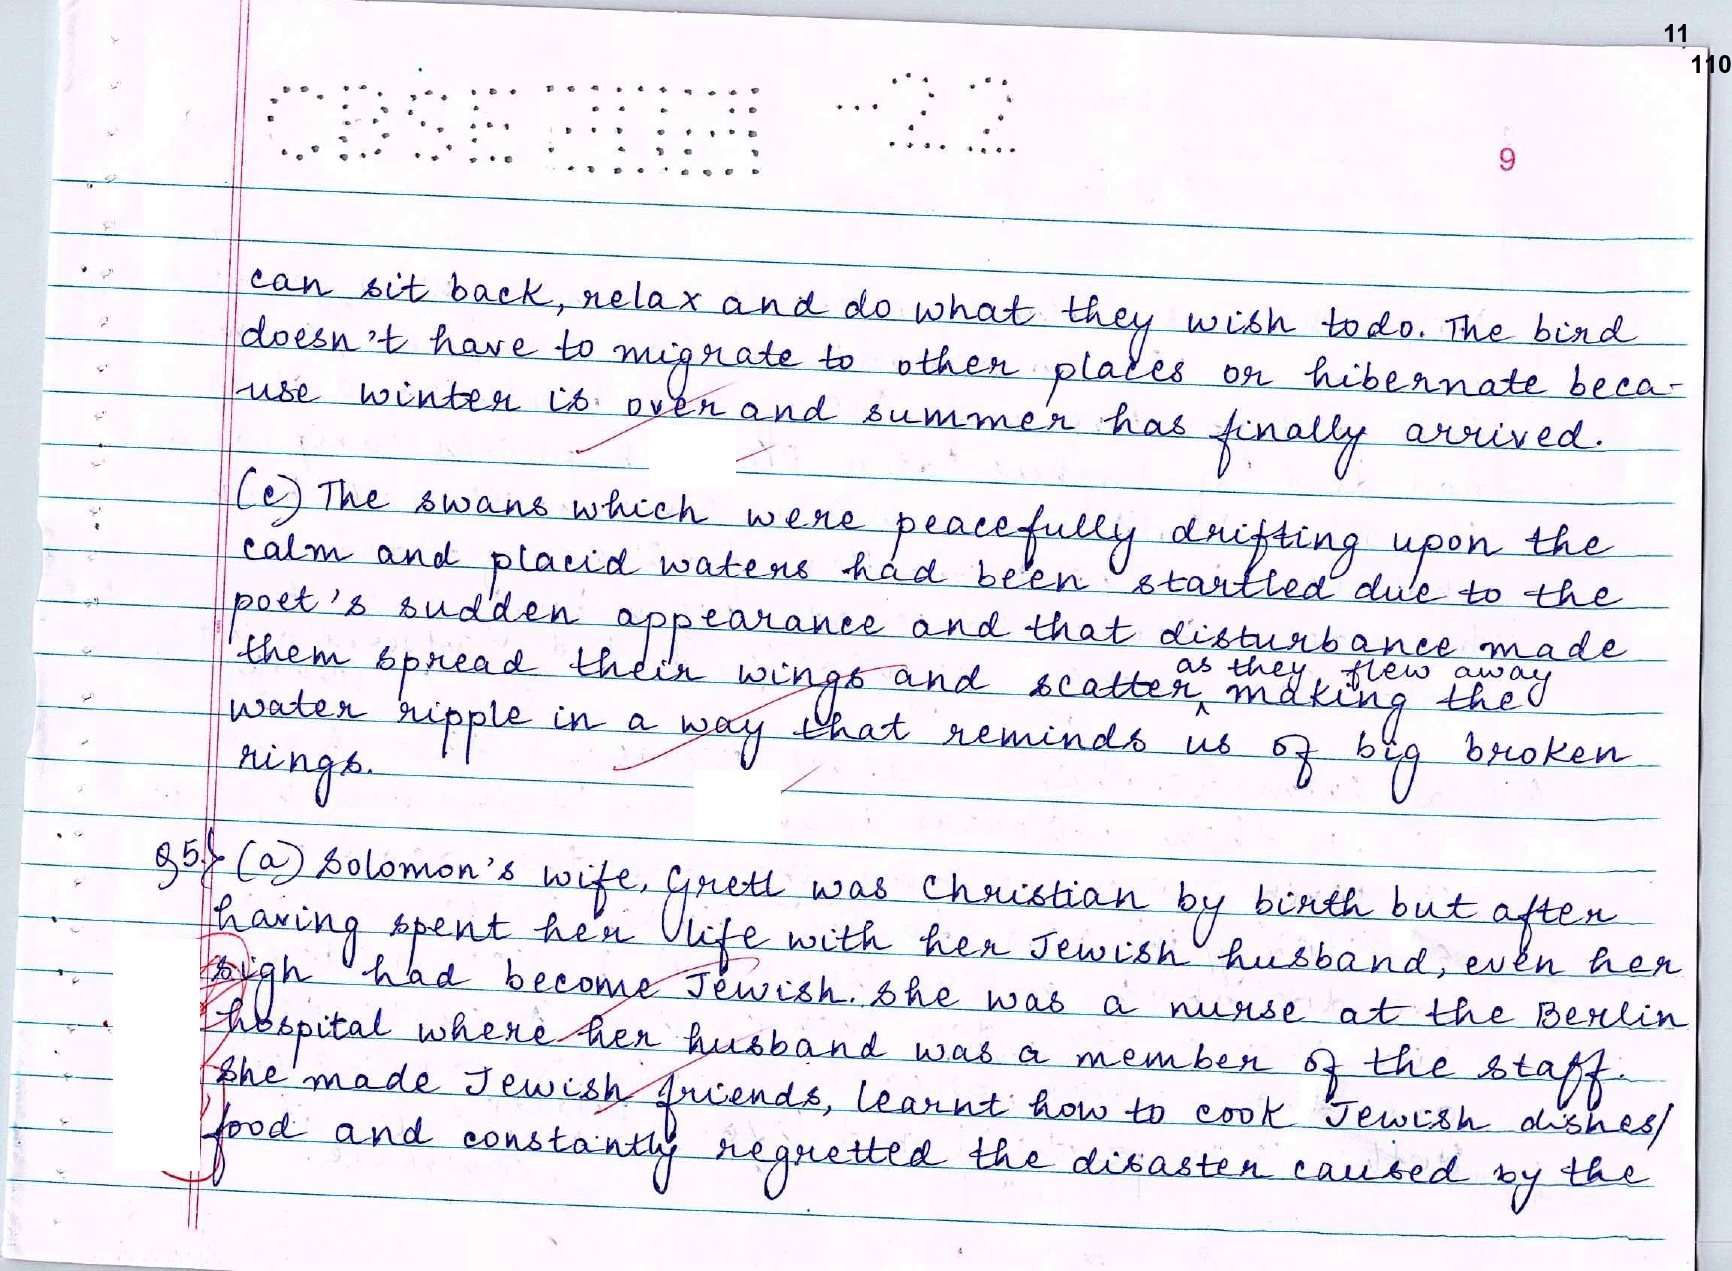 11
110
CBSE -22
9
can sit back, relax and do what they wish to do. The bird
doesn't have to migrate to other places or hibernate beca-
use winter is over and summer has finally arrived.
(c) The swans which were peacefully drifting upon the
calm and placid waters had been startled due to the
poet's sudden appearance and that disturbance made
them spread their wings and scatter as they flew away making the
water ripple in a way that reminds us of big broken
rings.
Q5.} (a) Solomon's wife, Gretl was Christian by birth but after
having spent her life with her Jewish husband, even her
sigh had become Jewish. She was a nurse at the Berlin
hospital where her husband was a member of the staff.
She made Jewish friends, learnt how to cook Jewish dishes/
food and constantly regretted the disaster caused by the